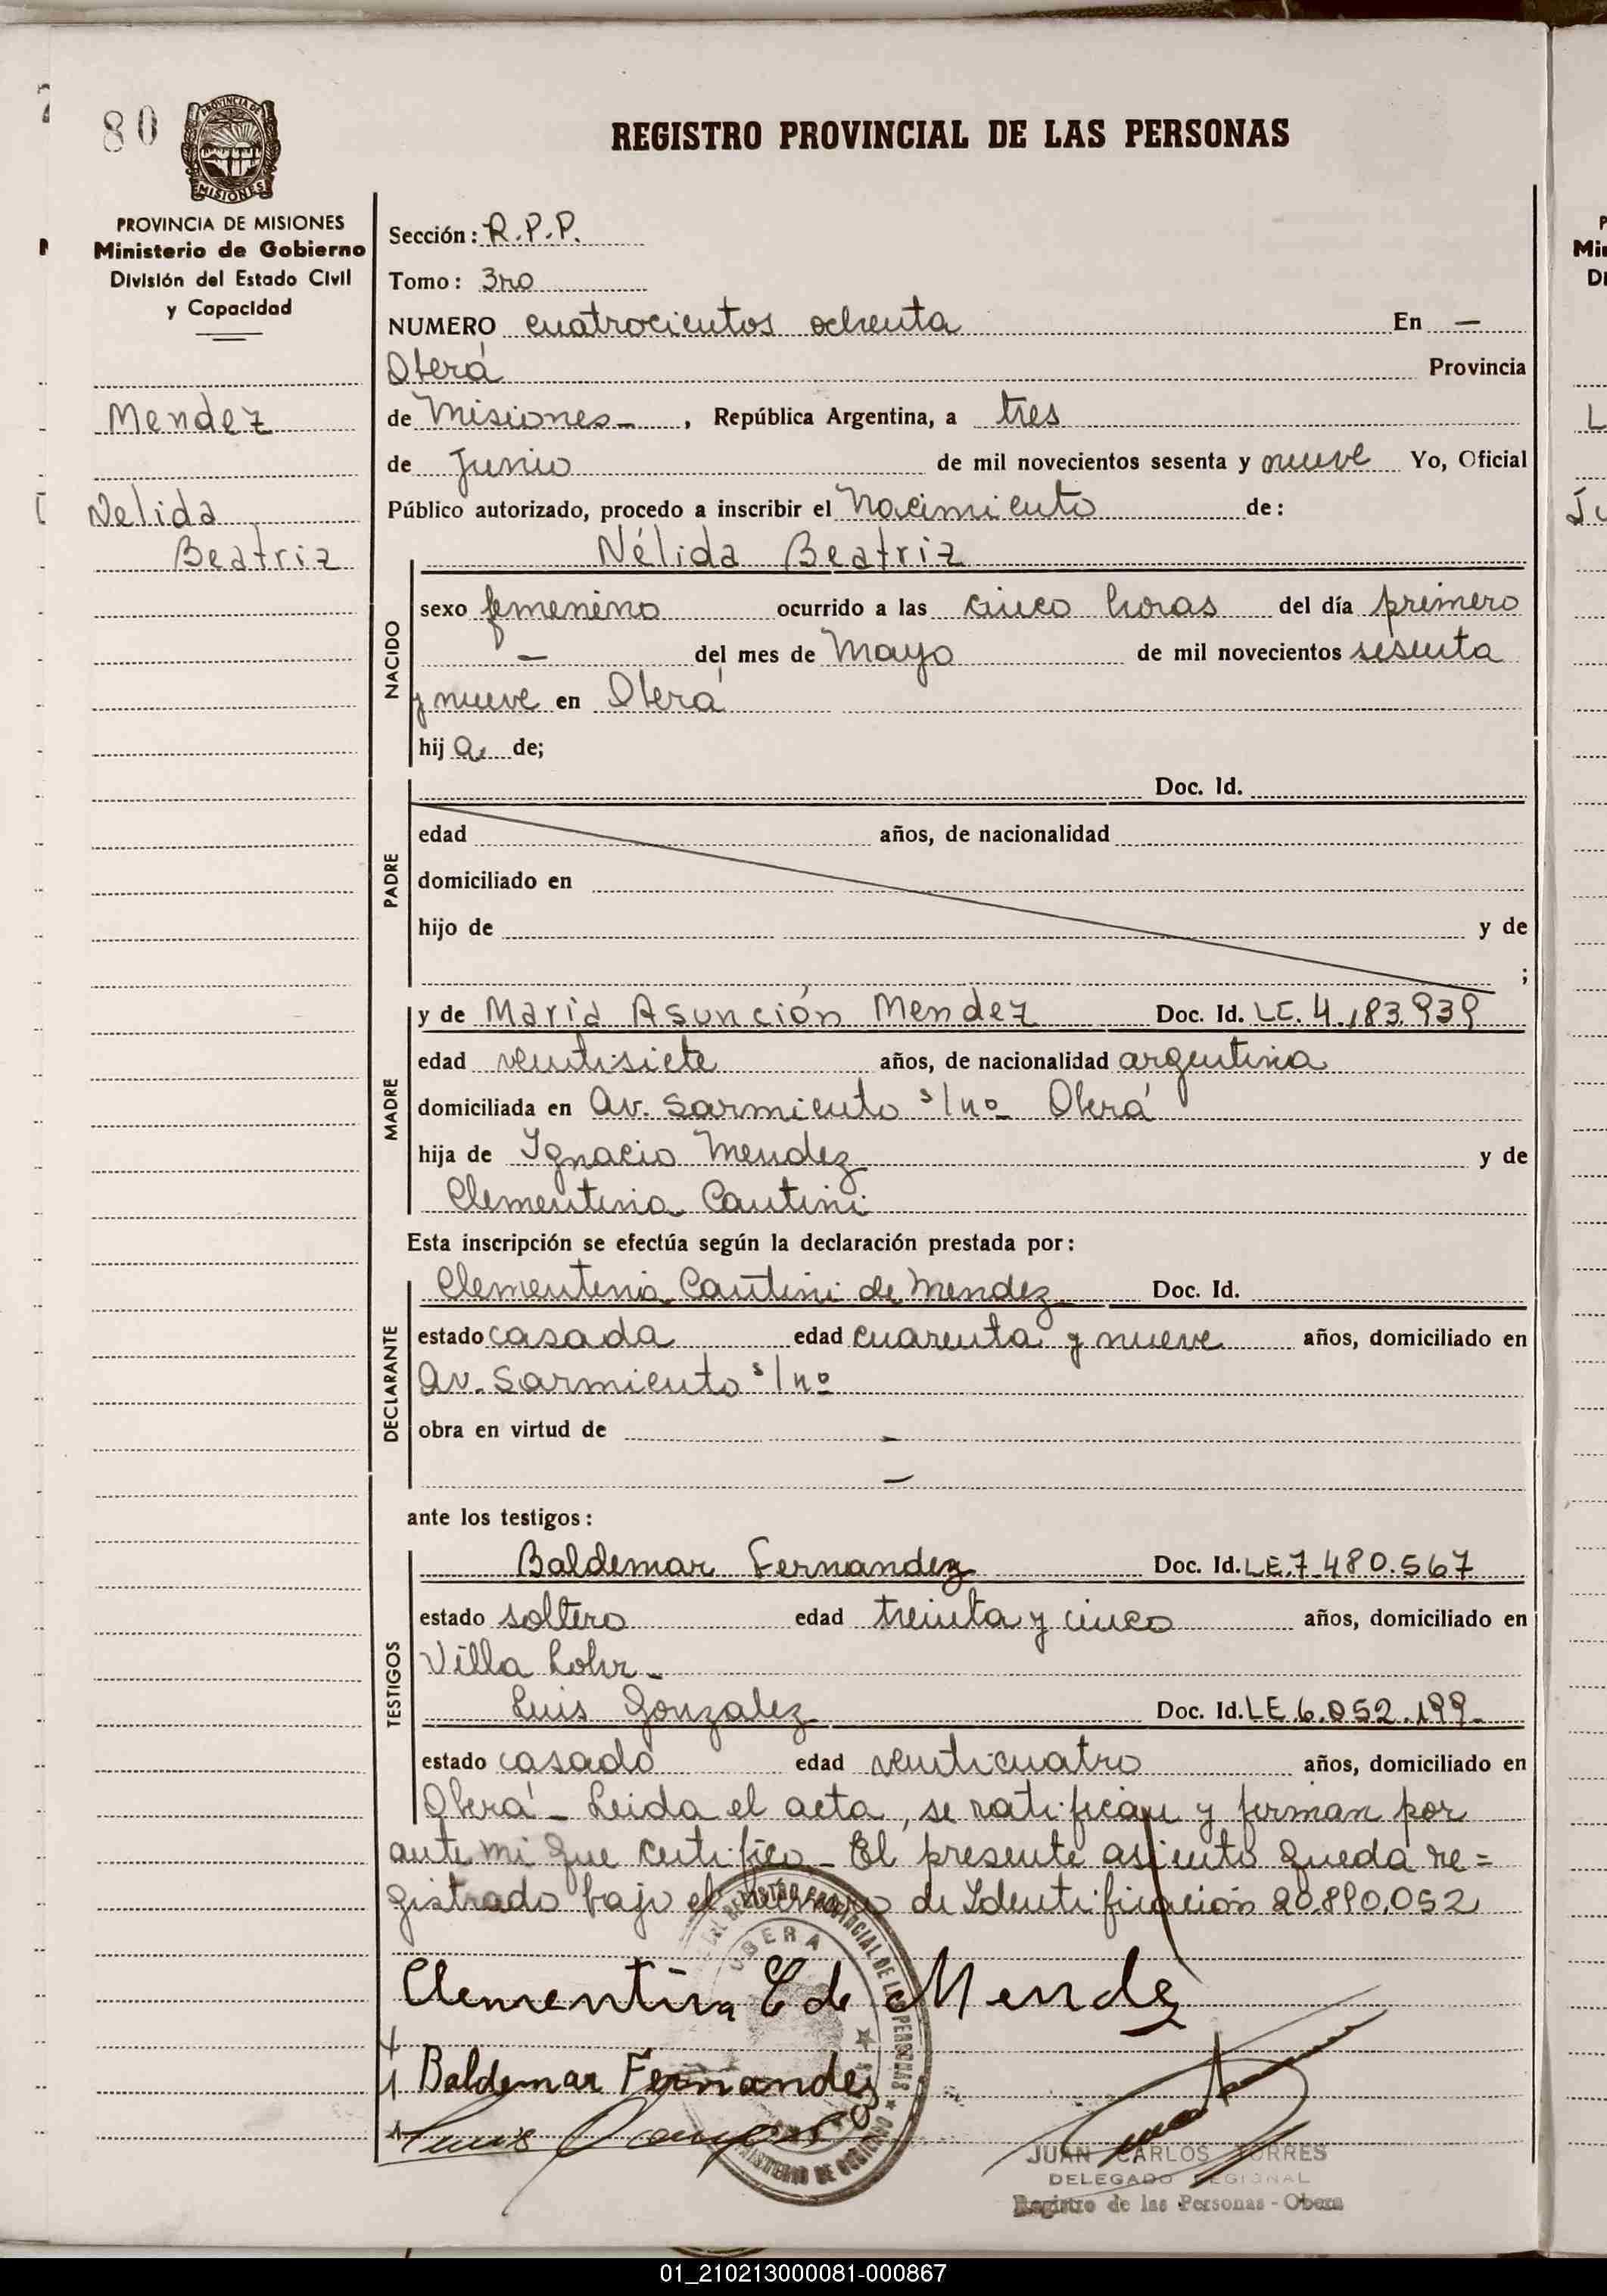 80
PROVINCIA DE
MISIONES
REGISTRO PROVINCIAL DE LAS PERSONAS
PROVINCIA DE MISIONES
Ministerio de Gobierno
División del Estado Civil
y Capacidad
Mendez
Nelida
Beatriz
Sección: R.P.P.
Tomo: 3ro
NUMERO cuatrocientos ochenta En —
Oberá Provincia
de Misiones -, República Argentina, a tres
de Junio de mil novecientos sesenta y nueve Yo, Oficial
Público autorizado, procedo a inscribir el Nacimiento de:
Nélida Beatriz
NACIDO
sexo femenino ocurrido a las cinco horas del día primero
— del mes de Mayo de mil novecientos sesenta
y nueve en Oberá
hija de;
PADRE
Doc. Id.
edad años, de nacionalidad
domiciliado en
hijo de y de
;
MADRE
y de María Asunción Mendez Doc. Id. LE. 4.183.939
edad ventisiete años, de nacionalidad argentina
domiciliada en Av. Sarmiento s/nº Oberá
hija de Ignacio Mendez y de
Clementina Cantini
Esta inscripción se efectúa según la declaración prestada por:
DECLARANTE
Clementina Cantini de Mendez Doc. Id.
estado casada edad cuarenta y nueve años, domiciliado en
Av. Sarmiento s/nº
obra en virtud de —
—
ante los testigos:
TESTIGOS
Baldemar Fernandez Doc. Id. LE.7.480.567
estado soltero edad treinta y cinco años, domiciliado en
Villa Lohr -
Luis Gonzalez Doc. Id. LE 6.052.199-
estado casado edad venticuatro años, domiciliado en
Oberá - Leida el acta, se ratifican y firman por
ante mi que certifico - El presente asiento queda re=
gistrado bajo el número de Identificación 20.890.052
Clementina C de Mendez
Baldemar Fernandez
Luis
REGISTRO PROVINCIAL DE LAS PERSONAS
OBERA
MINISTERIO DE GOBIERNO
JUAN CARLOS TORRES
DELEGADO REGIONAL
Registro de las Personas - Obera
01_210213000081-000867